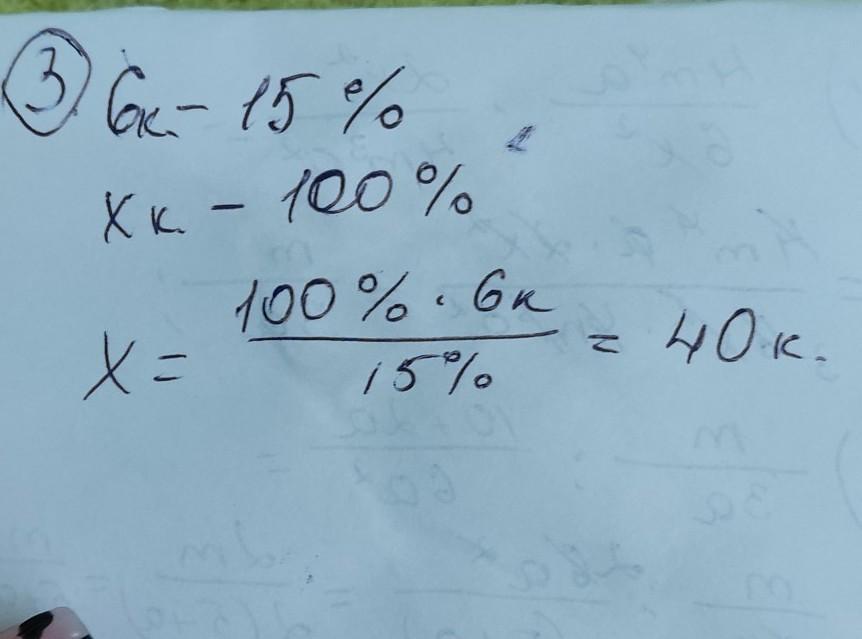 ③ 6к. - 15%
хк. - 100%
х = 100% · 6к / 15% = 40к.